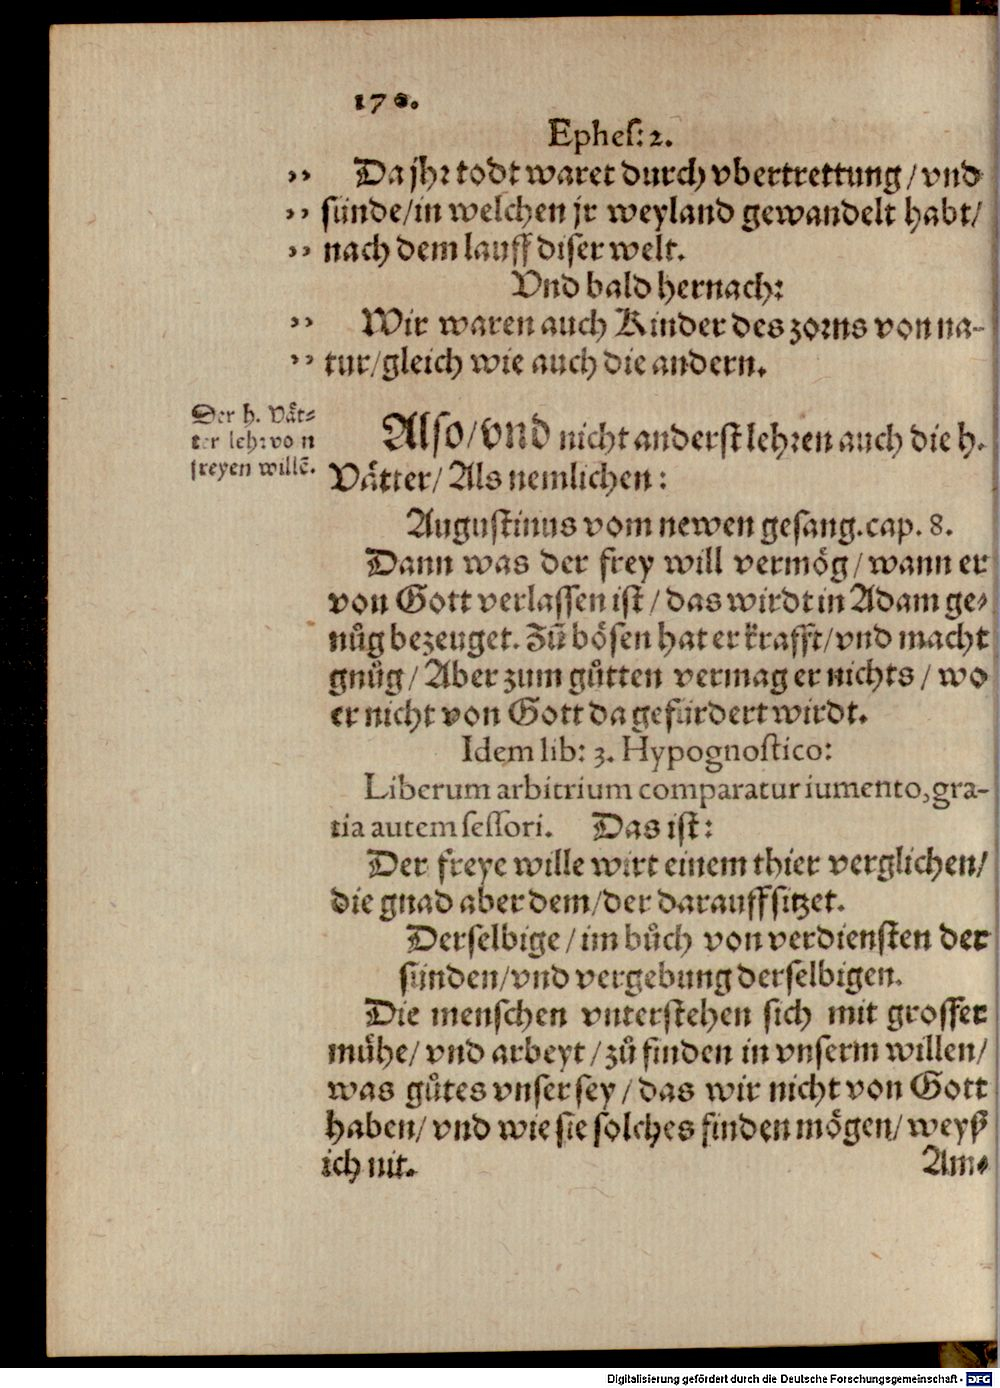 170.
Ephes: 2.
„ Da jhr todt waret durch vbertrettung / vnd
„ sünde / in welchen jr weyland gewandelt habt /
„ nach dem lauff diser welt.
Vnd bald hernach:
„ Wir waren auch Kinder des zorns von na-
„ tur / gleich wie auch die andern.
Der h. Våt-
ter lehr von
freyen willē.
Also / vnd nicht anderst lehren auch die h.
Våtter / Als nemlichen:
Augustinus vom newen gesang. cap. 8.
Dann was der frey will vermög / wann er
von Gott verlassen ist / das wirdt in Adam ge-
nůg bezeuget. Zů bösen hat er krafft / vnd macht
gnůg / Aber zum gůtten vermag er nichts / wo
er nicht von Gott da gefürdert wirdt.
Idem lib: 3. Hypognostico:
Liberum arbitrium comparatur iumento, gra-
tia autem sessori. Das ist:
Der freye wille wirt einem thier verglichen /
die gnad aber dem / der darauff sitzet.
Derselbige / im bůch von verdiensten der
sünden / vnd vergebung derselbigen.
Die menschen vnterstehen sich mit grosser
můhe / vnd arbeyt / zů finden in vnserm willen /
was gůtes vnser sey / das wir nicht von Gott
haben / vnd wie sie solches finden mögen / weyß
ich nit.
Am-
Digitalisierung gefördert durch die Deutsche Forschungsgemeinschaft - DFG